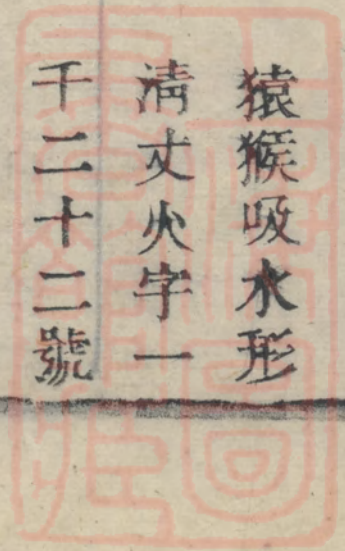 猿猴吸水形
清丈火字一
千二十二號